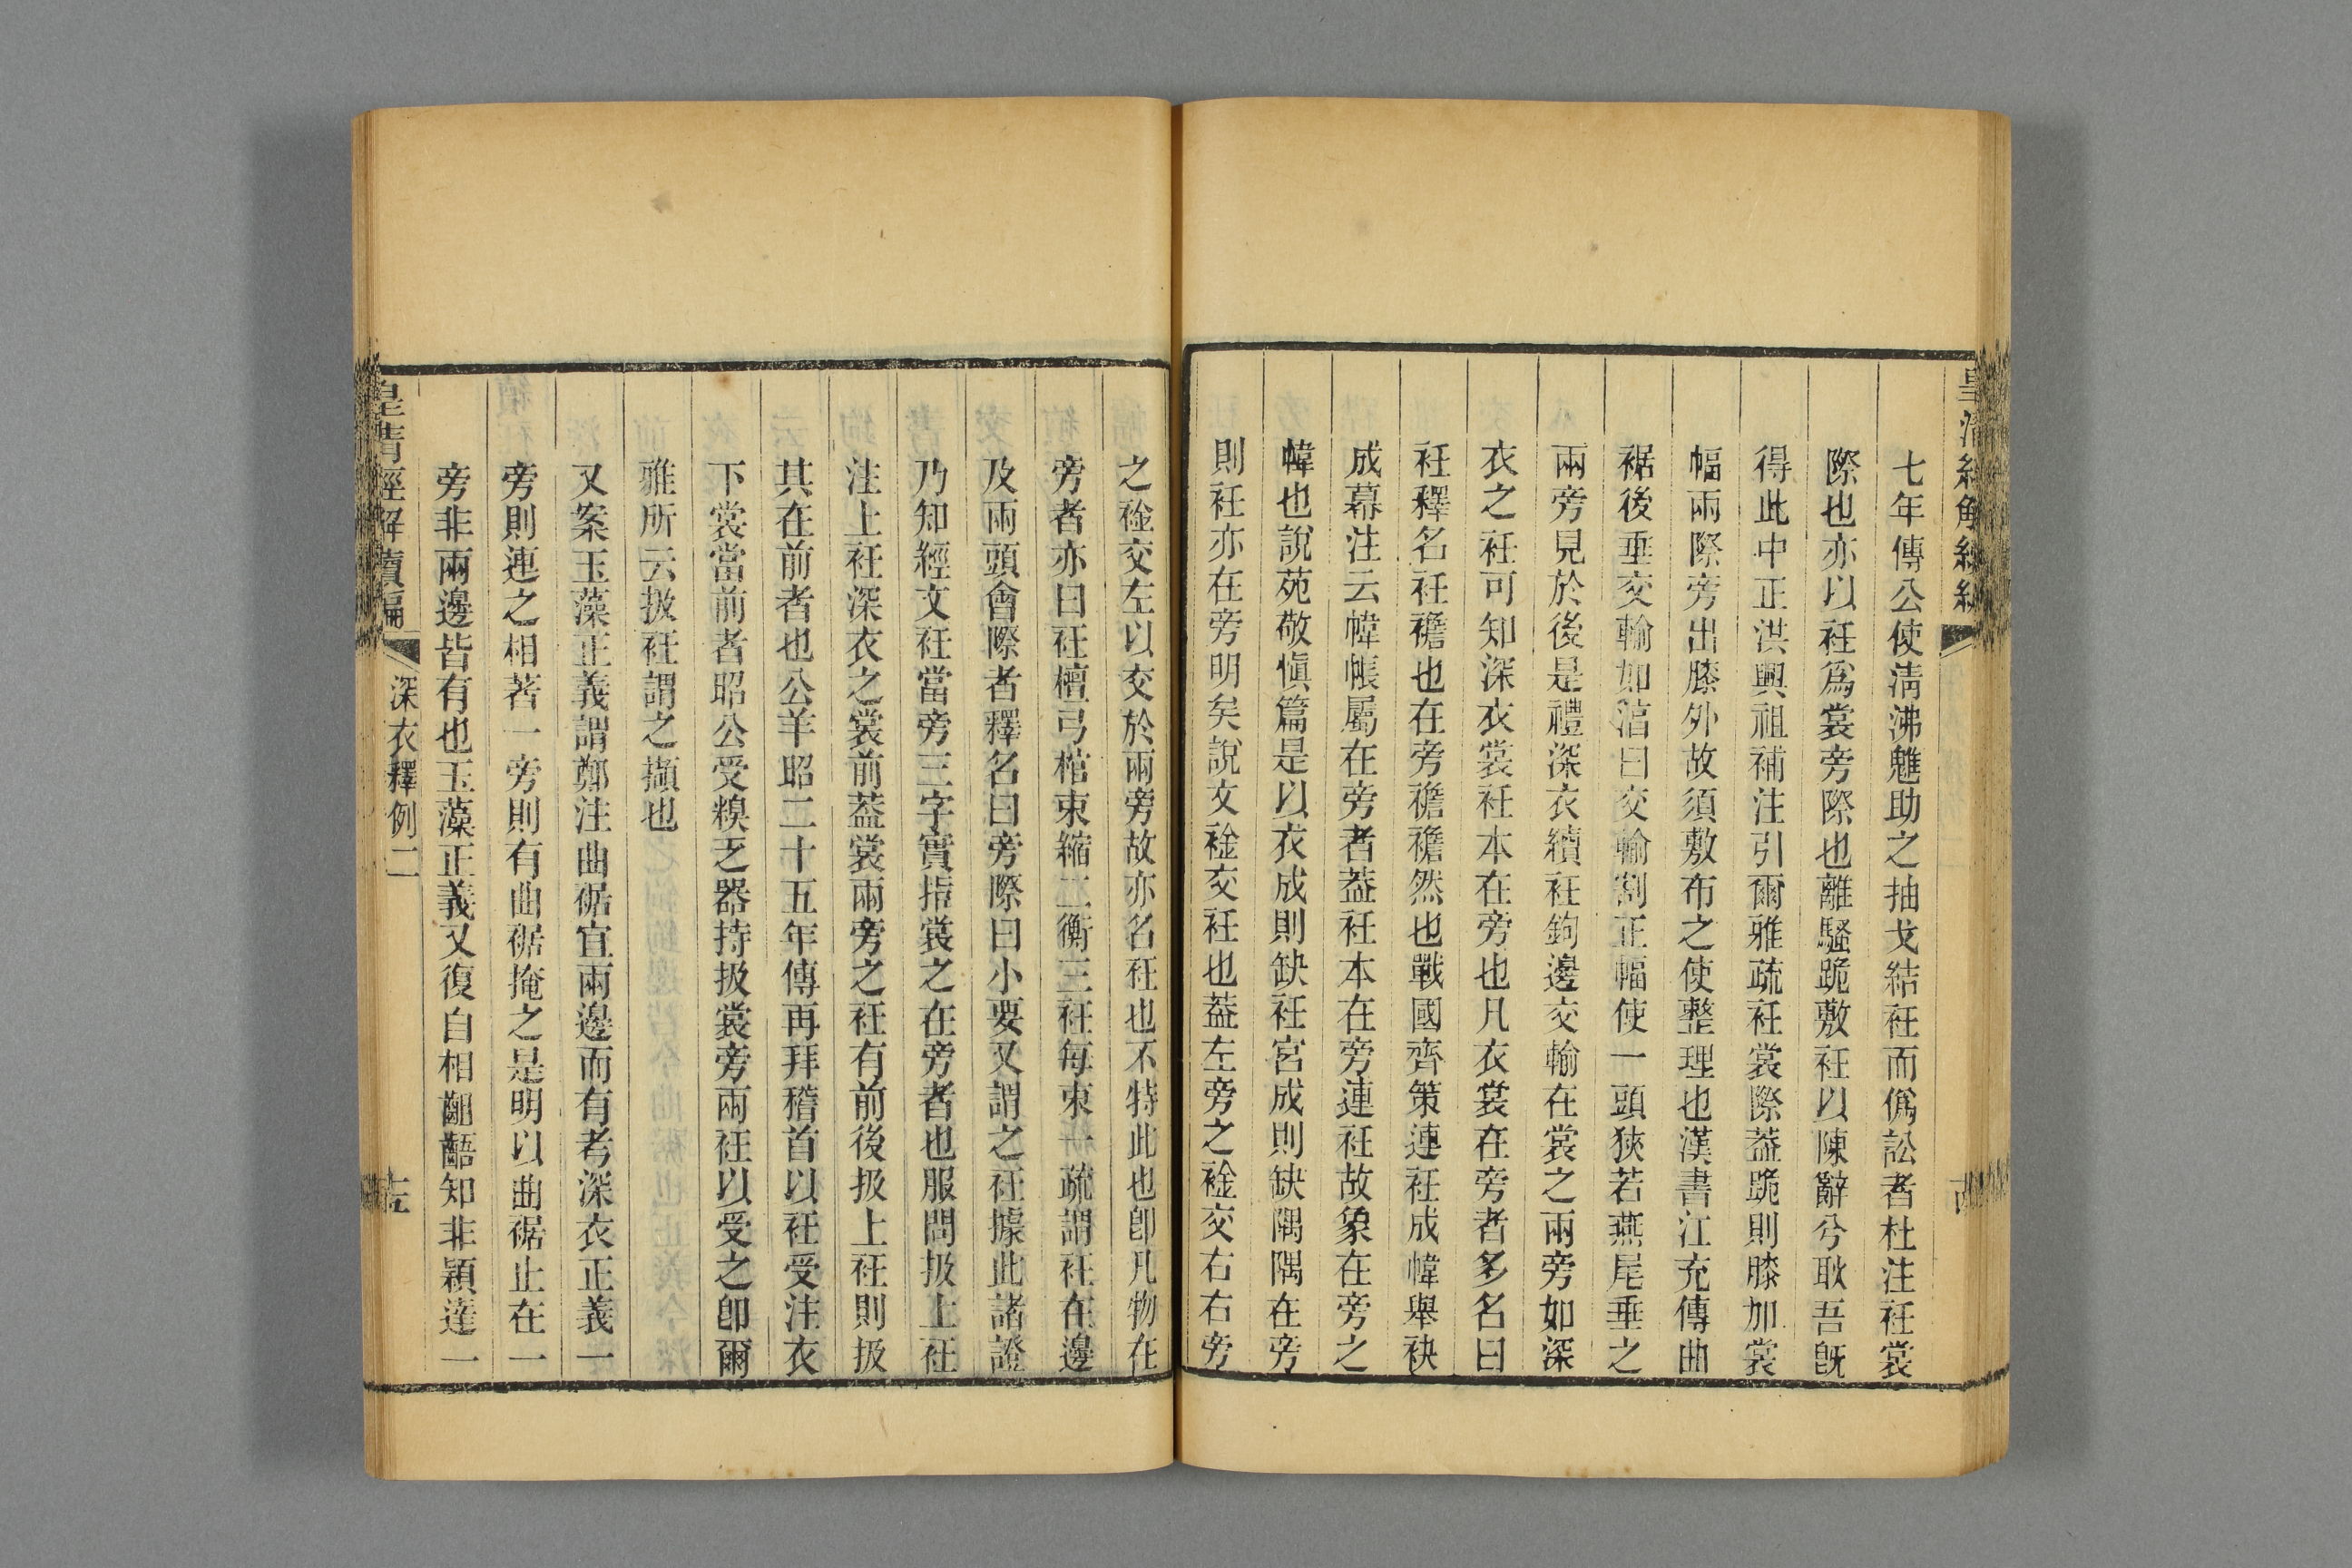 七年傳公使淸沸魋助之抽戈結衽而僞訟者杜注衽裳
際也亦以衽爲裳旁際也離騷跪敷衽以陳辭兮耿吾旣
得此中正洪興祖補注引爾雅疏衽裳際葢跪則膝加裳
幅兩際旁出膝外故須敷布之使整理也漢書江充傳曲
裾後垂交輸如淳曰交輸割正幅使一頭狹若燕尾垂之
兩旁見於後是禮深衣續衽鉤邊交輸在裳之兩旁如深
衣之衽可知深衣裳衽本在旁也凡衣裳在旁者多名曰
衽釋名衽襜也在旁襜襜然也戰國齊策連衽成幃舉袂
成幕注云幃帳屬在旁者葢衽本在旁連衽故象在旁之
幃也說苑敬愼篇是以衣成則缺衽宮成則缺隅隅在旁
則衽亦在旁明矣說文䘳交衽也葢左旁之䘳交右右旁
之䘳交左以交於兩旁故亦名衽也不特此也卽凡物在
旁者亦曰衽檀弓棺束縮二衡三衽每束一疏謂衽在邊
及兩頭會際者釋名曰旁際曰小要又謂之衽據此諸證
乃知經文衽當旁三字實指裳之在旁者也服問扱上衽
注上衽深衣之裳前葢裳兩旁之衽有前後扱上衽則扱
其在前者也公羊昭二十五年傳再拜稽首以衽受注衣
下裳當前者昭公受糗乏器持扱裳旁兩衽以受之卽爾
雅所云扱衽謂之擷也
又案玉藻正義謂鄭注曲裾宜兩邊而有考深衣正義一
旁則連之相著一旁則有曲裾掩之是明以曲裾止在一
旁非兩邊皆有也玉藻正義又復自相齟齬知非穎達一
皇清經解續編
深衣釋例二